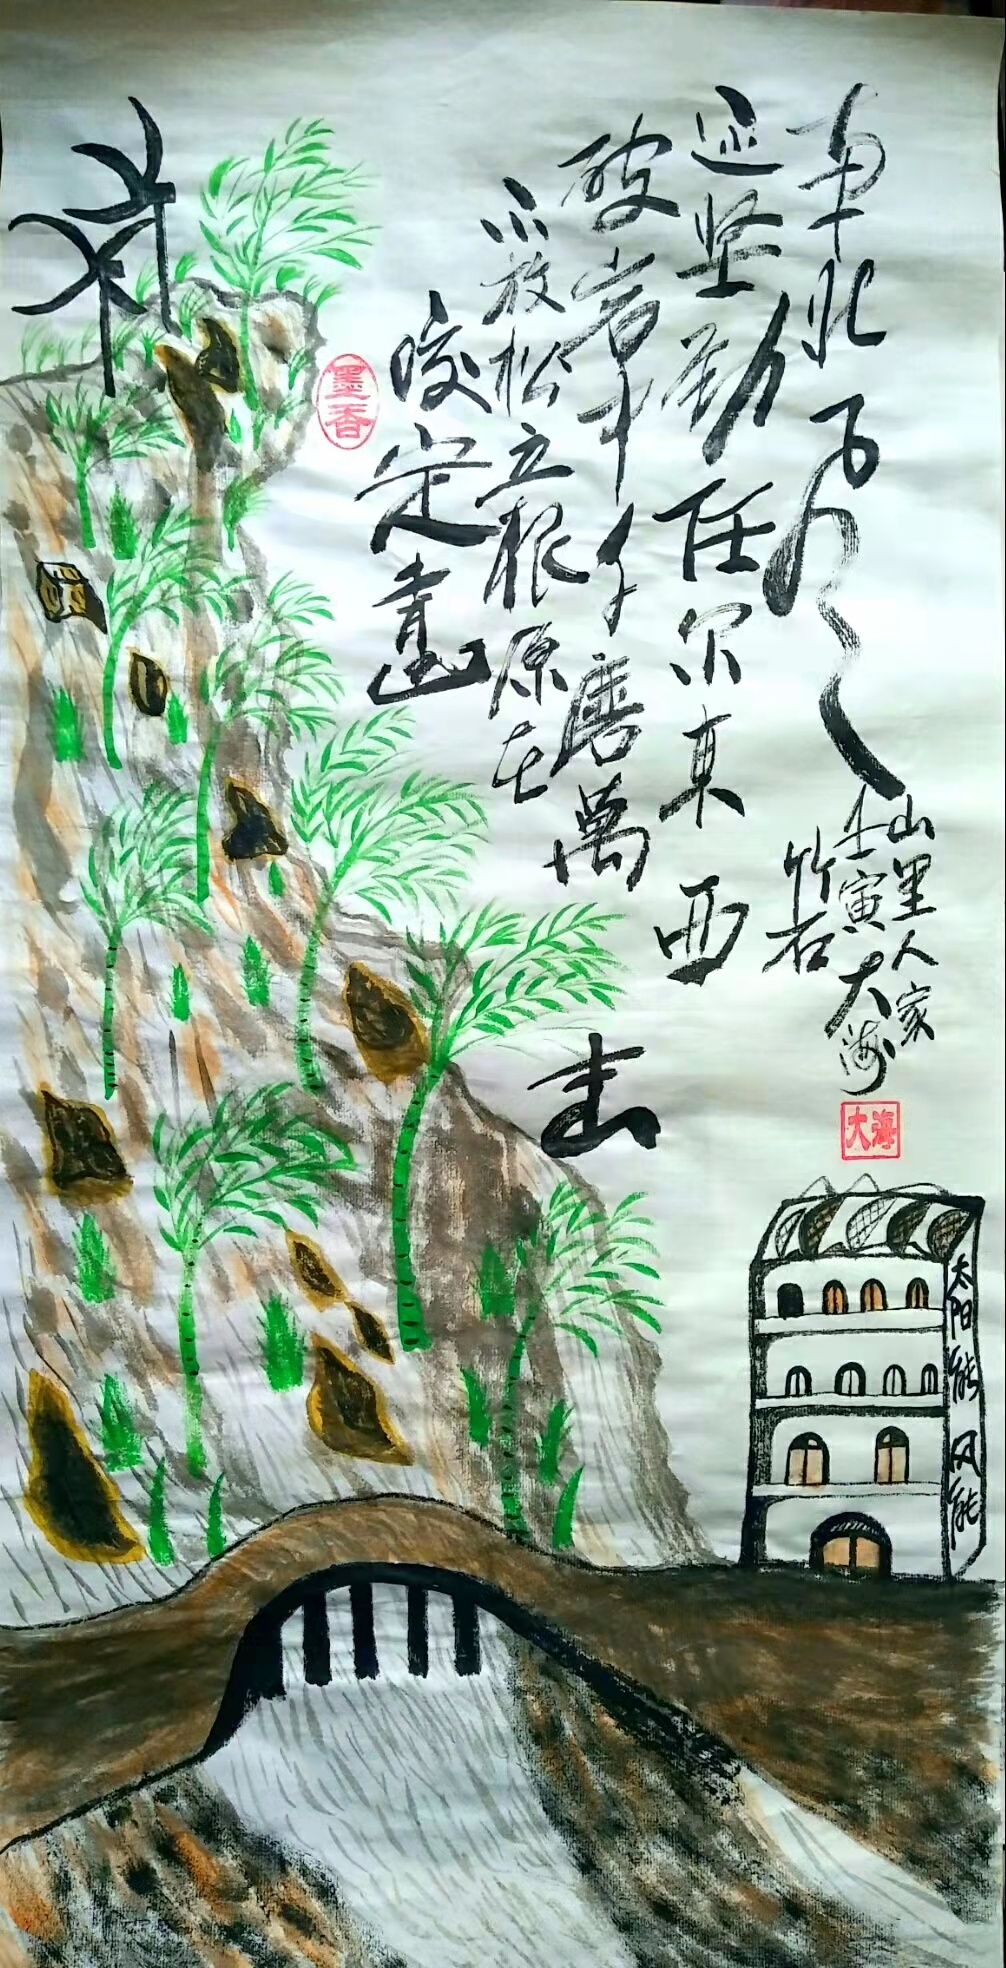 咬定青山
不放松立根原在
破岩中千磨萬
击
还坚劲任尔东西
南北风
竹石
壬寅大海
山里人家
大海
太阳能 风能